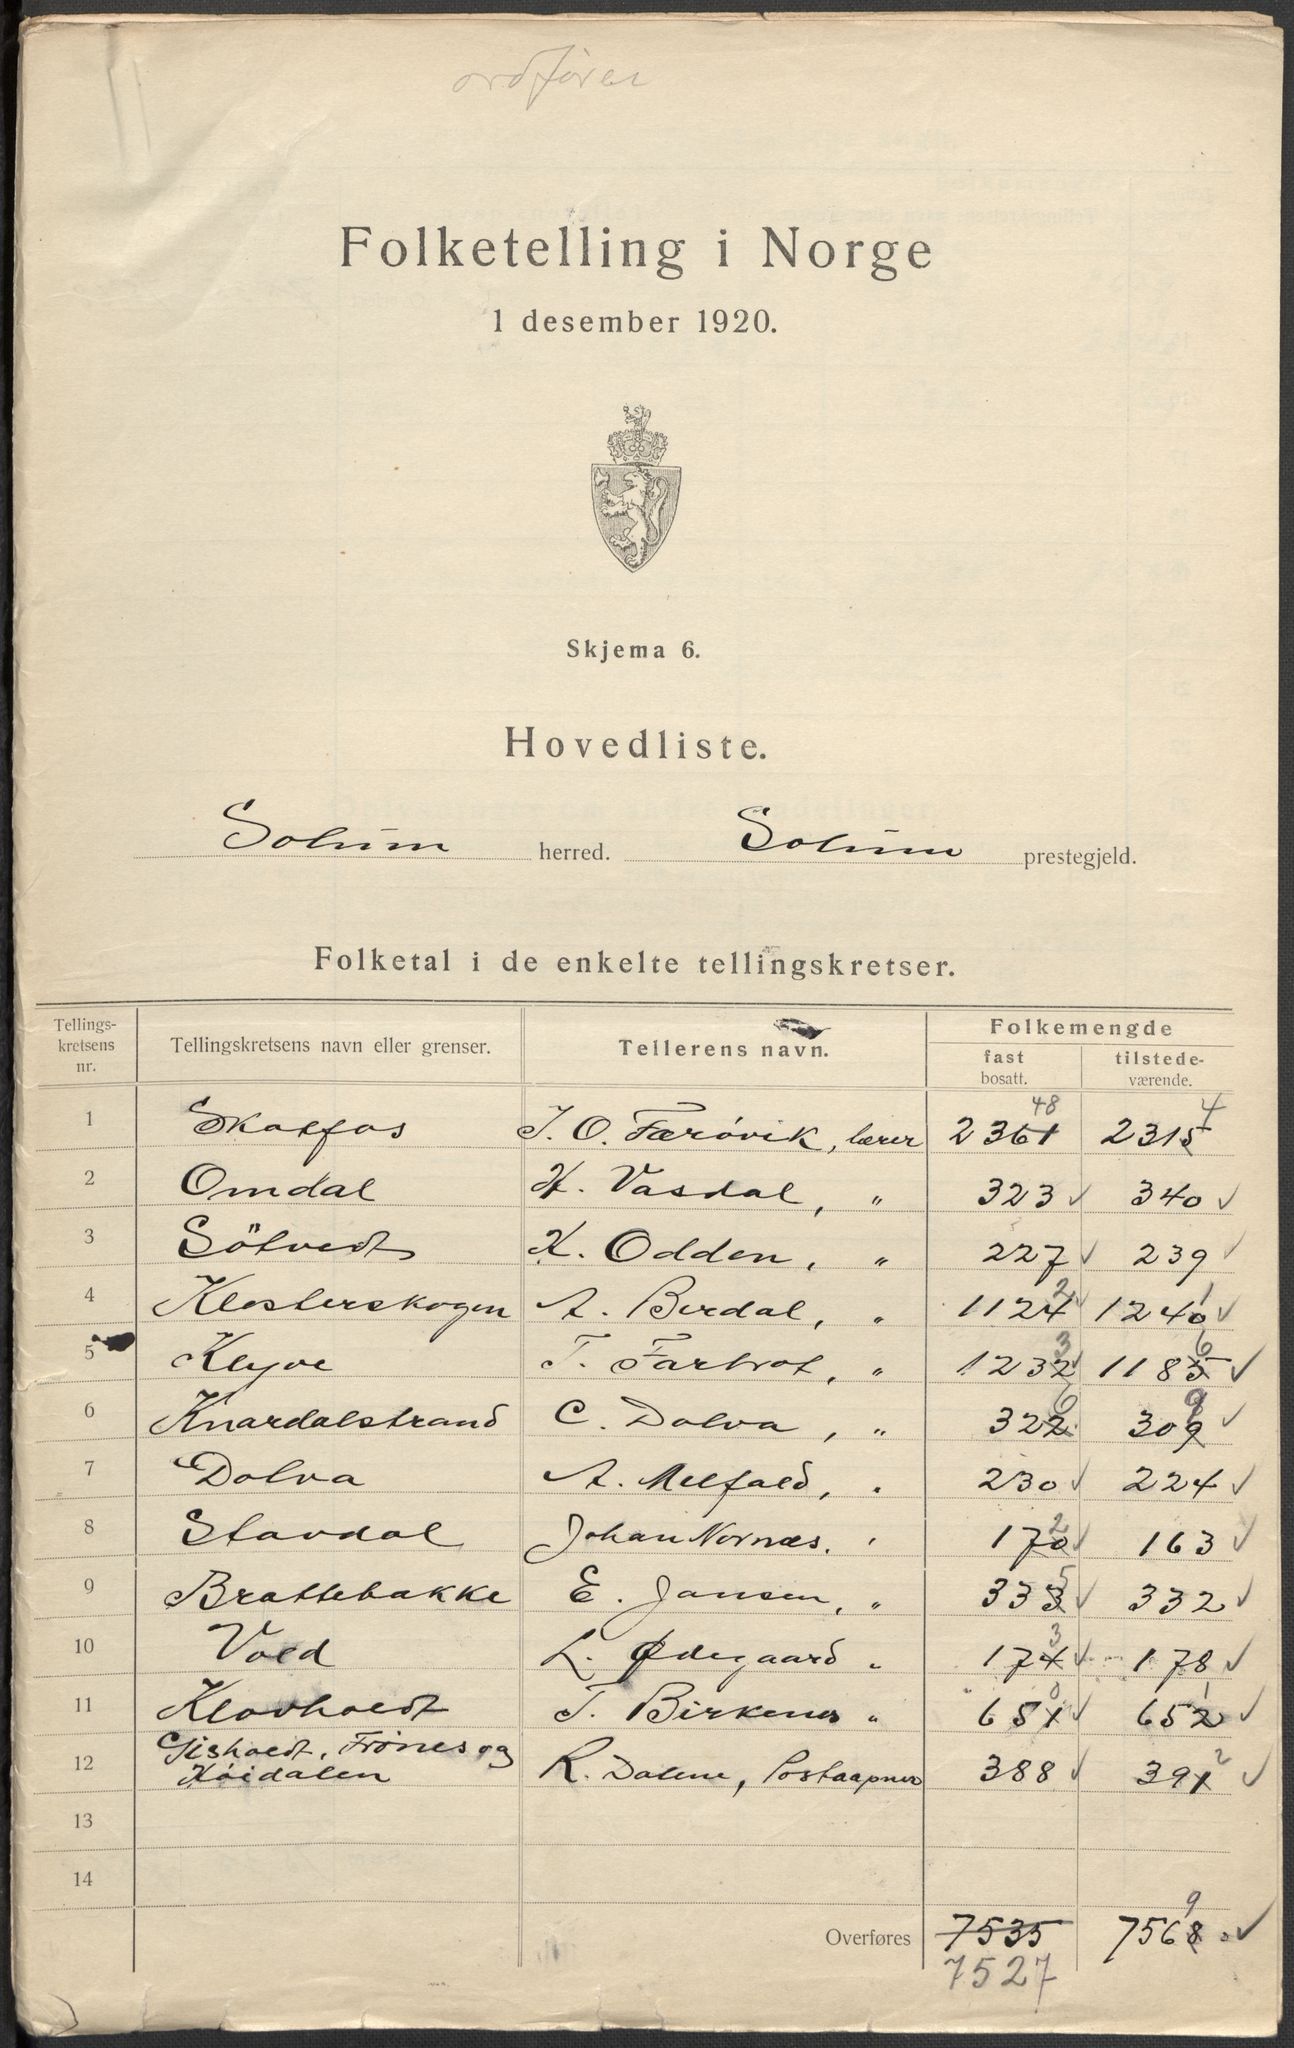 ordfører
Folketelling i Norge
1 desember 1920.
Skjema 6.
Hovedliste.
Solum herred. Solum prestegjeld.
Folketal i de enkelte tellingskretser.
Tellings-kretsens nr. Tellingskretsens navn eller grenser. Tellerens navn. Folkemengde
fast bosatt. tilstede-værende.
1 Skotfos J. O. Færövik, lærer 2361 48 2315 4
2 Omdal H. Vasdal, " 323 ✓ 340 ✓
3 Sötvedt K. Odden, " 227 ✓ 239 ✓
4 Klosterskogen A. Berdal, " 1124 2 ✓ 1240 1 ✓
5 Klyve T. Fartrot, " 1232 3 ✓ 1185 6 ✓
6 Knardalstrand C. Dolva, " 322 6 309 9 ✓
7 Dolva A. Melfald, " 230 ✓ 224 ✓
8 Stavdal Johan Nornæs. " 170 2 ✓ 163 ✓
9 Brattebakke E. Jansen, " 333 5 ✓ 332 ✓
10 Vold L. Ødegaard " 174 3 ✓ 178 ✓
11 Klovholdt T. Birkenes " 651 0 ✓ 652 1 ✓
12 Gisholdt, Frönes og
Köidalen R. Dalene, Postaapner 388 ✓ 391 2 ✓
13
14
Overføres 7535 7568 9 ✓
7527